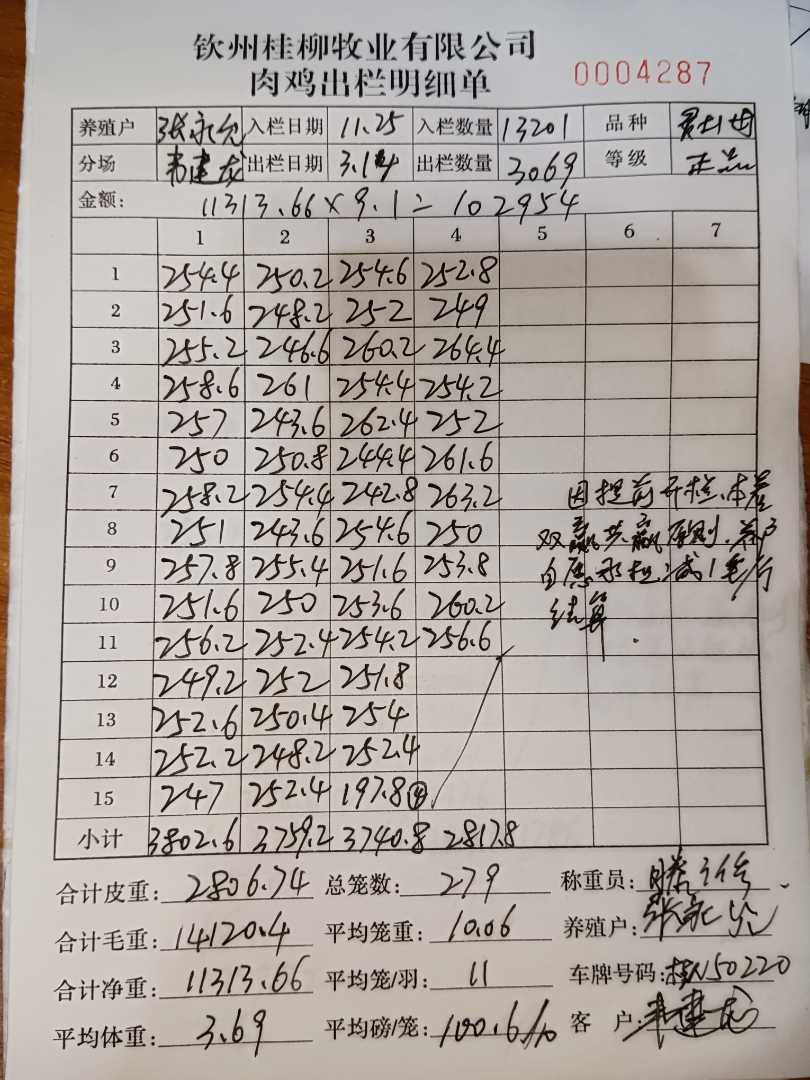 钦州桂柳牧业有限公司
肉鸡出栏明细单 0004287
养殖户 张永允 入栏日期 11.25 入栏数量 13201 品种
分场 韦建龙 出栏日期 3.14 出栏数量 3069 等级 正品
金额: 11313.66×9.1=102954
1 2 3 4 5 6 7
1 254.4 250.2 254.6 252.8
2 251.6 248.2 252 249
3 255.2 246.6 260.2 264.4
4 258.6 261 254.4 254.2
5 257 243.6 262.4 252
6 250 250.8 244.4 261.6
7 258.2 254.4 242.8 263.2 因提前开栏、本着
8 251 243.6 254.6 250 双赢共赢原则、养户
9 257.8 255.4 251.6 253.8 自愿 减1毛/斤
10 251.6 250 253.6 260.2 结算.
11 256.2 252.4 254.2 256.6
12 249.2 252 251.8
13 252.6 250.4 254
14 252.2 248.2 252.4
15 247 252.4 197.8 ④
小计 3802.6 3759.2 3740.8 2817.8
合计皮重: 2806.74 总笼数: 279 称重员:
合计毛重: 14120.4 平均笼重: 10.06 养殖户: 张永允
合计净重: 11313.66 平均笼/羽: 11 车牌号码: 桂N50220
平均体重: 3.69 平均磅/笼: 100.6/10 客户: 韦建龙